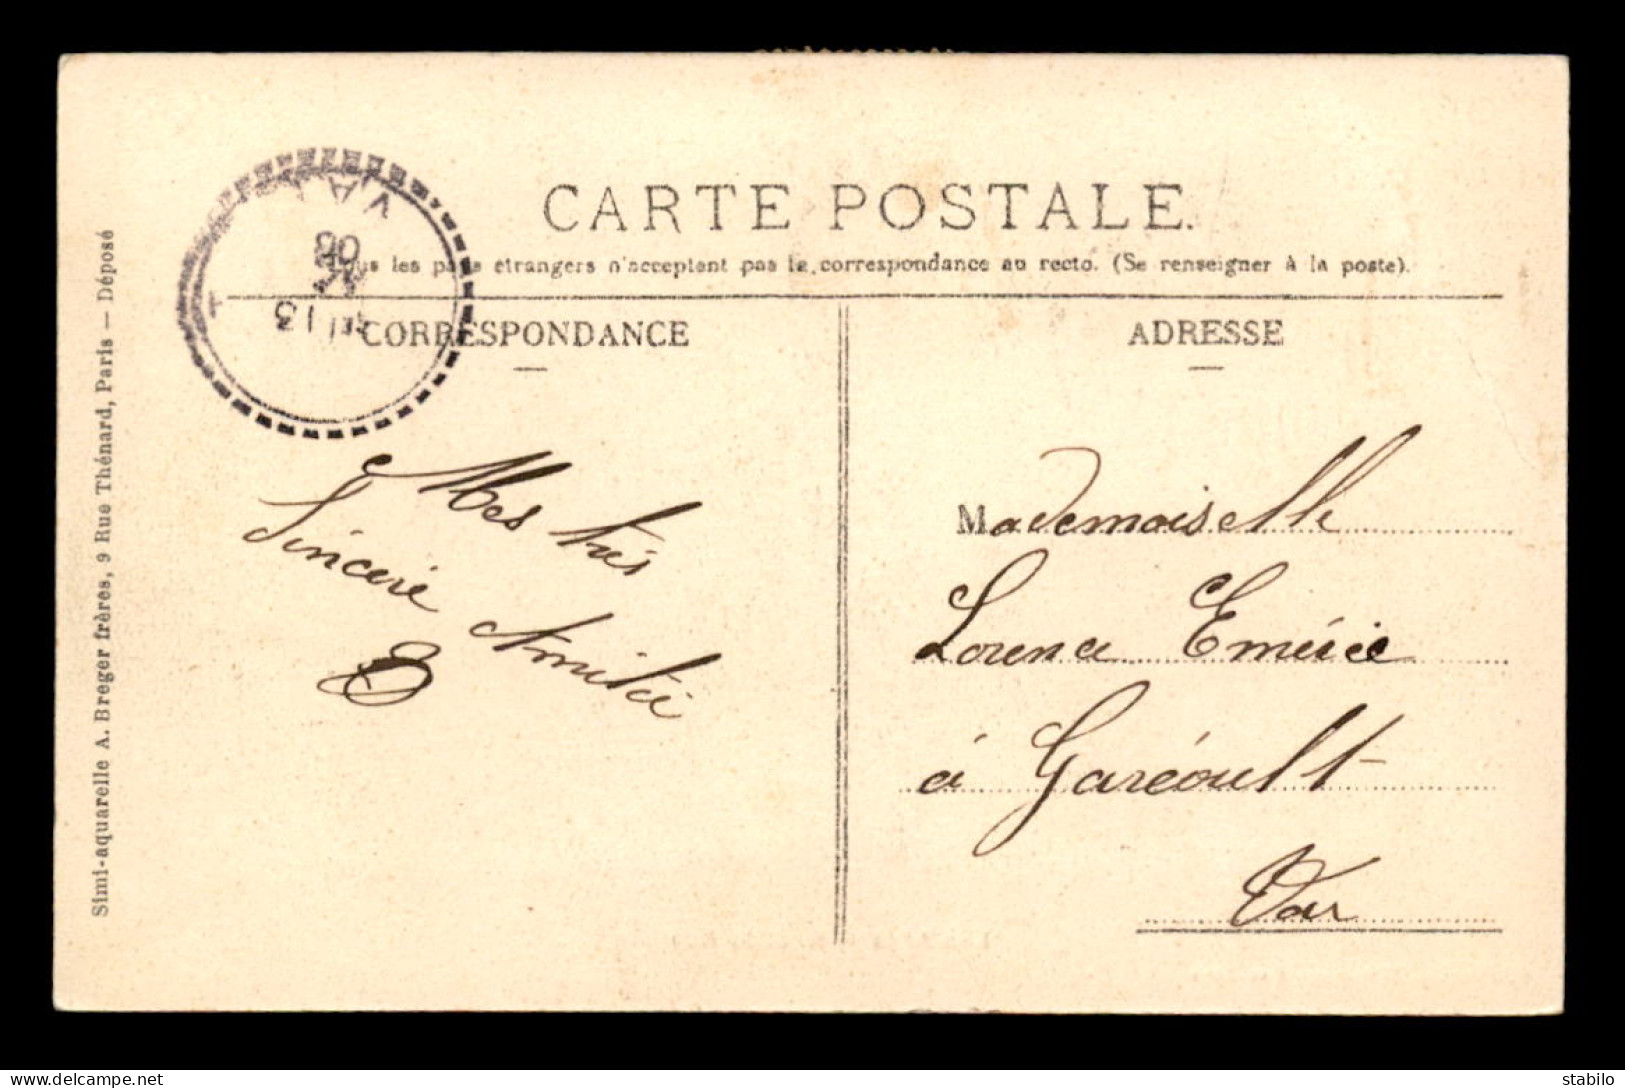 CARTE POSTALE.
Tous les pays étrangers n'acceptent pas la correspondance au recto. (Se renseigner à la poste).
CORRESPONDANCE
Mes très
Sincère Amitié
ADRESSE
Mademoiselle
Lorence Emérie
à Garéoult
Var
Simi-aquarelle A. Breger frères, 9 Rue Thénard, Paris — Déposé
13
08
VAR
delcampe.net
stabilo